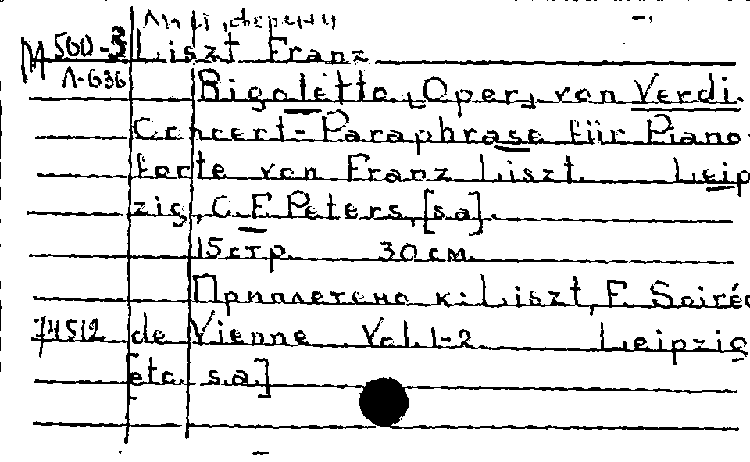 Лист, Ференц
М 500-3 Liszt Franz
Л-636 Rigoletto [Oper] von Verdi.
Concert-Paraphrase für Piano-
forte von Franz Liszt. Leip
zig, C. F. Peters, [s.a].
15 стр. 30 см.
Приплетено к: Liszt, F. Soirée
74512 de Vienne Vol. 1-2. Leipzig
[etc. s.a.]